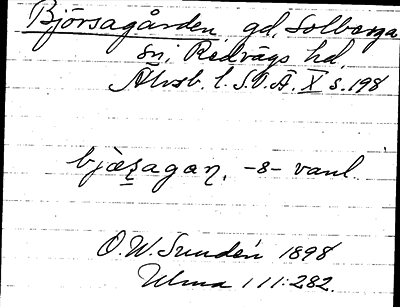 Björsagården, gd, Solberga
sn, Redvägs hd,
Älvsb. l. S.O.Ä. X s. 198
bjæ̀ʂagaɳ, -s- vanl.
O. W. Sundén 1898
Ulma 111:282.